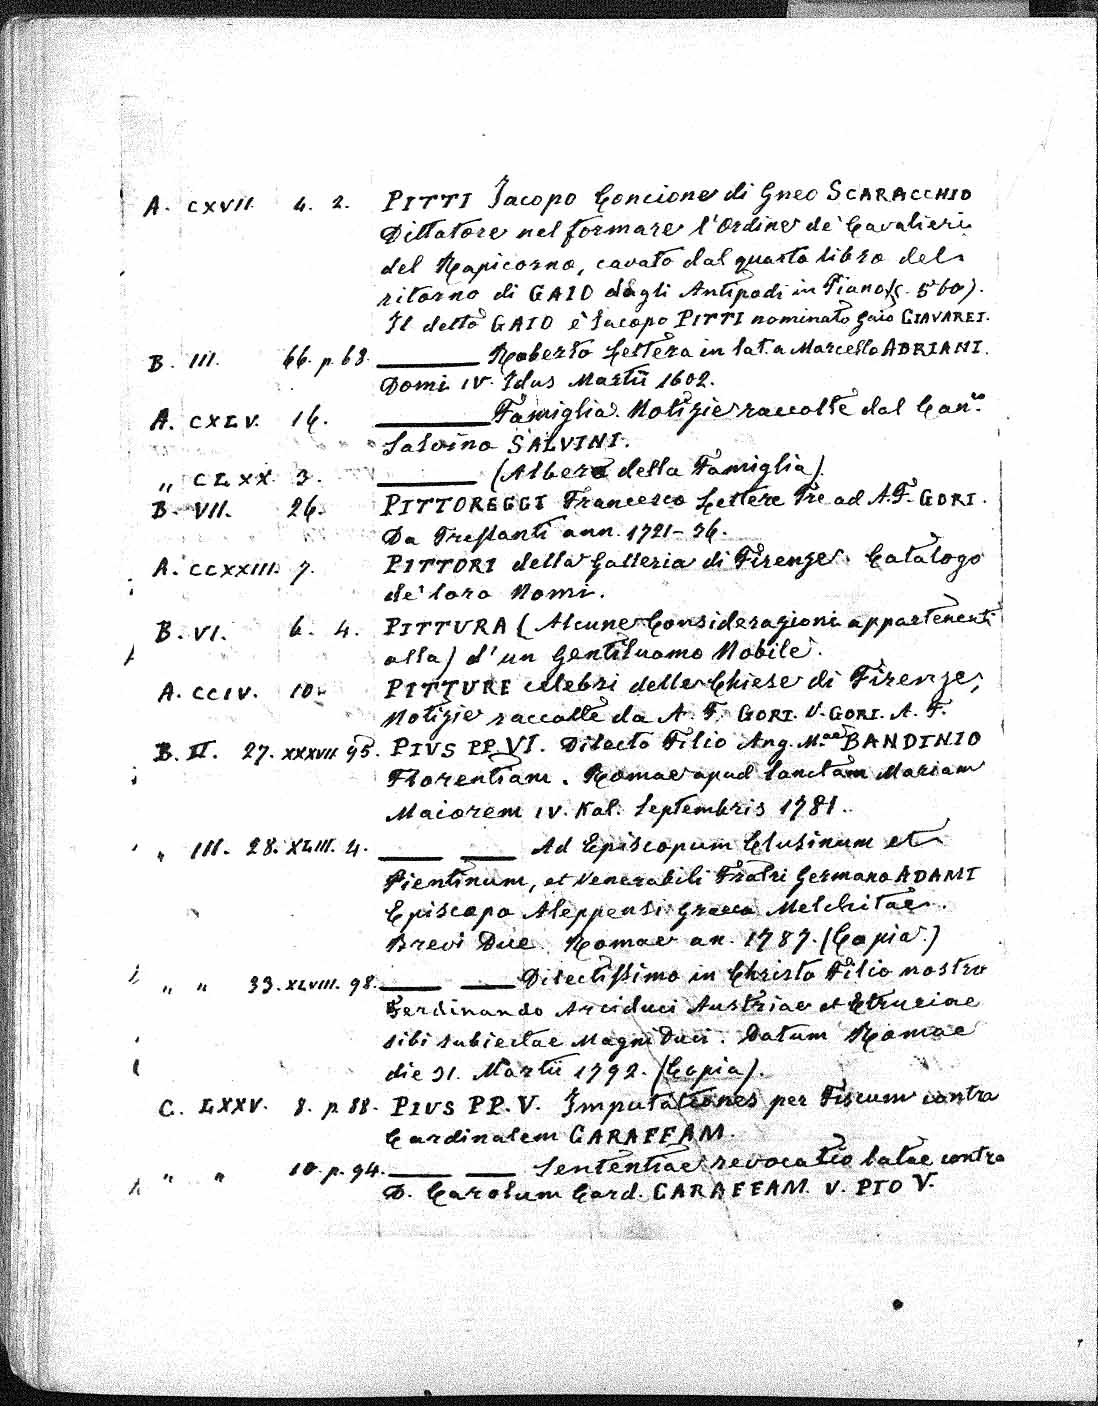 A. CXVII. 4. 2. PITTI Jacopo Concione di Gneo SCARACCHIO
Dittatore nel formare l'Ordine de' Cavalieri
del Kapicorno, cavato dal quarto libro del
ritorno di GAIO dagli Antipodi in Piano (c. 560).
Il detto GAIO è Jacopo PITTI nominato Gaio GIAVAREI.
B. III. 66. p. 68. ——— Roberto Lettera in lat. a Marcello ADRIANI.
Domi IV. Idus Martii 1602.
A. CXLV. 16. ——— Famiglia. Notizie raccolte dal Can.co
Salvino SALVINI.
„ CLXX 3. ——— (Albero della Famiglia)
B. VII. 26. PITTOREGGI Francesco Lettere Tre ad A. F. GORI.
Da Trespanti ann. 1721-36.
A. CCXXIII. 7. PITTORI della Galleria di Firenze. Catalogo
de' loro Nomi.
B. VI. 6. 4. PITTURA (Alcune Considerazioni appartenenti
alla) d'un Gentiluomo Nobile.
A. CCIV. 10. PITTURE celebri delle Chiese di Firenze,
Notizie raccolte da A. F. GORI. V. GORI. A. F.
B. II. 27. XXXVII 95. PIVS PP. VI. Dilecto Filio Ang. M.ae BANDINIO
Florentiam. Romae apud Sanctam Mariam
Maiorem IV. Kal. Septembris 1781.
„ III. 28. XLIII. 4. ——— ——— Ad Episcopum Clusinum et
Pientinum, et Venerabili Fratri Germano ADAMI
Episcopo Aleppensi Graeco Melchitae.
Brevi Due. Romae an. 1787. (Copia)
„ „ 33. XLVIII. 98. ——— ——— Dilectissimo in Christo Filio nostro
Ferdinando Arciduci Austriae et Etruriae
sibi subiectae Magni Duci. Datum Romae
die 31. Martii 1792. (Copia).
C. LXXV. 8. p. 88. PIVS PP. V. Imputationes per Fiscum contra
Cardinalem CARAFFAM.
„ „ 10. p. 94. ——— ——— Sententiae revocatio latae contra
D. Carolum Card. CARAFFAM. V. PIO V.